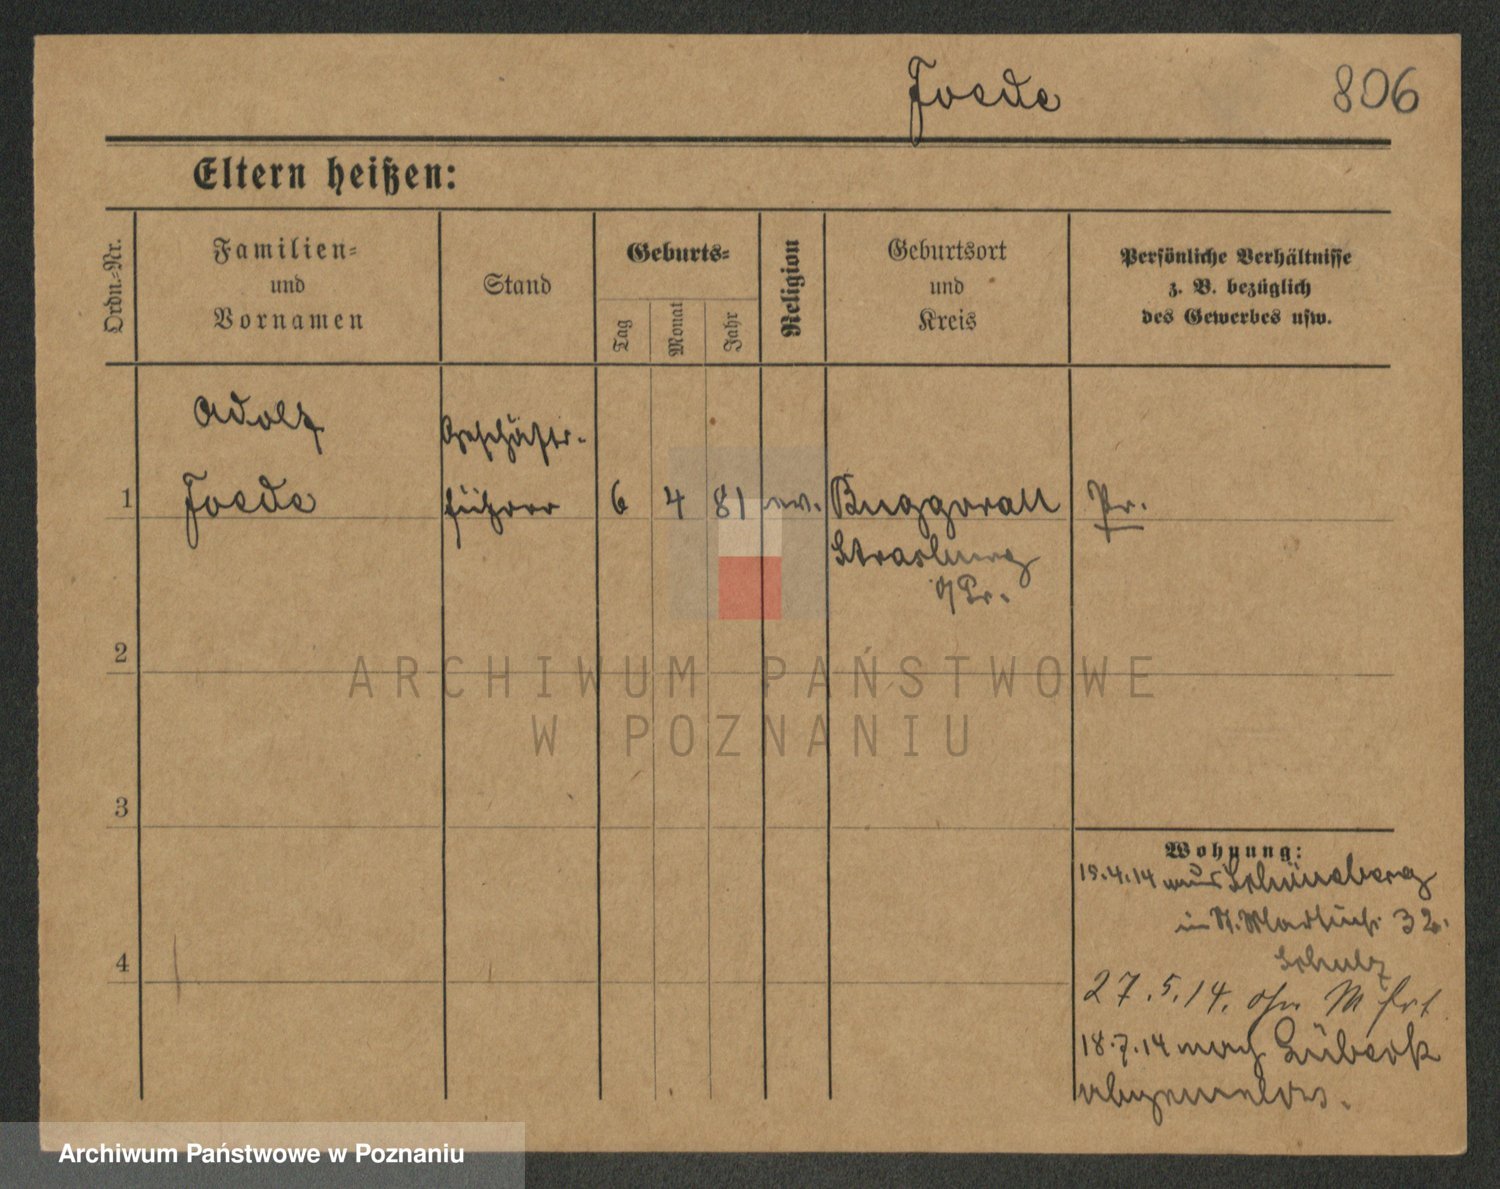 Joede 806
Eltern heißen:
Ordn.-Nr.
Familien-
und
Vornamen
Stand
Geburts-
Tag
Monat
Jahr
Religion
Geburtsort
und
Kreis
Persönliche Verhältnisse
z. B. bezüglich
des Gewerbes usw.
Adolf
Geschäfts-
1 Joede führer 6 4 81 ev. Buggoral Pr.
Strasburg
W/Pr.
2
ARCHIWUM PAŃSTWOWE
W POZNANIU
3
Wohnung:
19.4.14 aus Schöneberg
in St. Martinstr. 32
Schulz
4
27.5.14. ohn
18.7.14 nach Lübeck
abgemeldet.
Archiwum Państwowe w Poznaniu